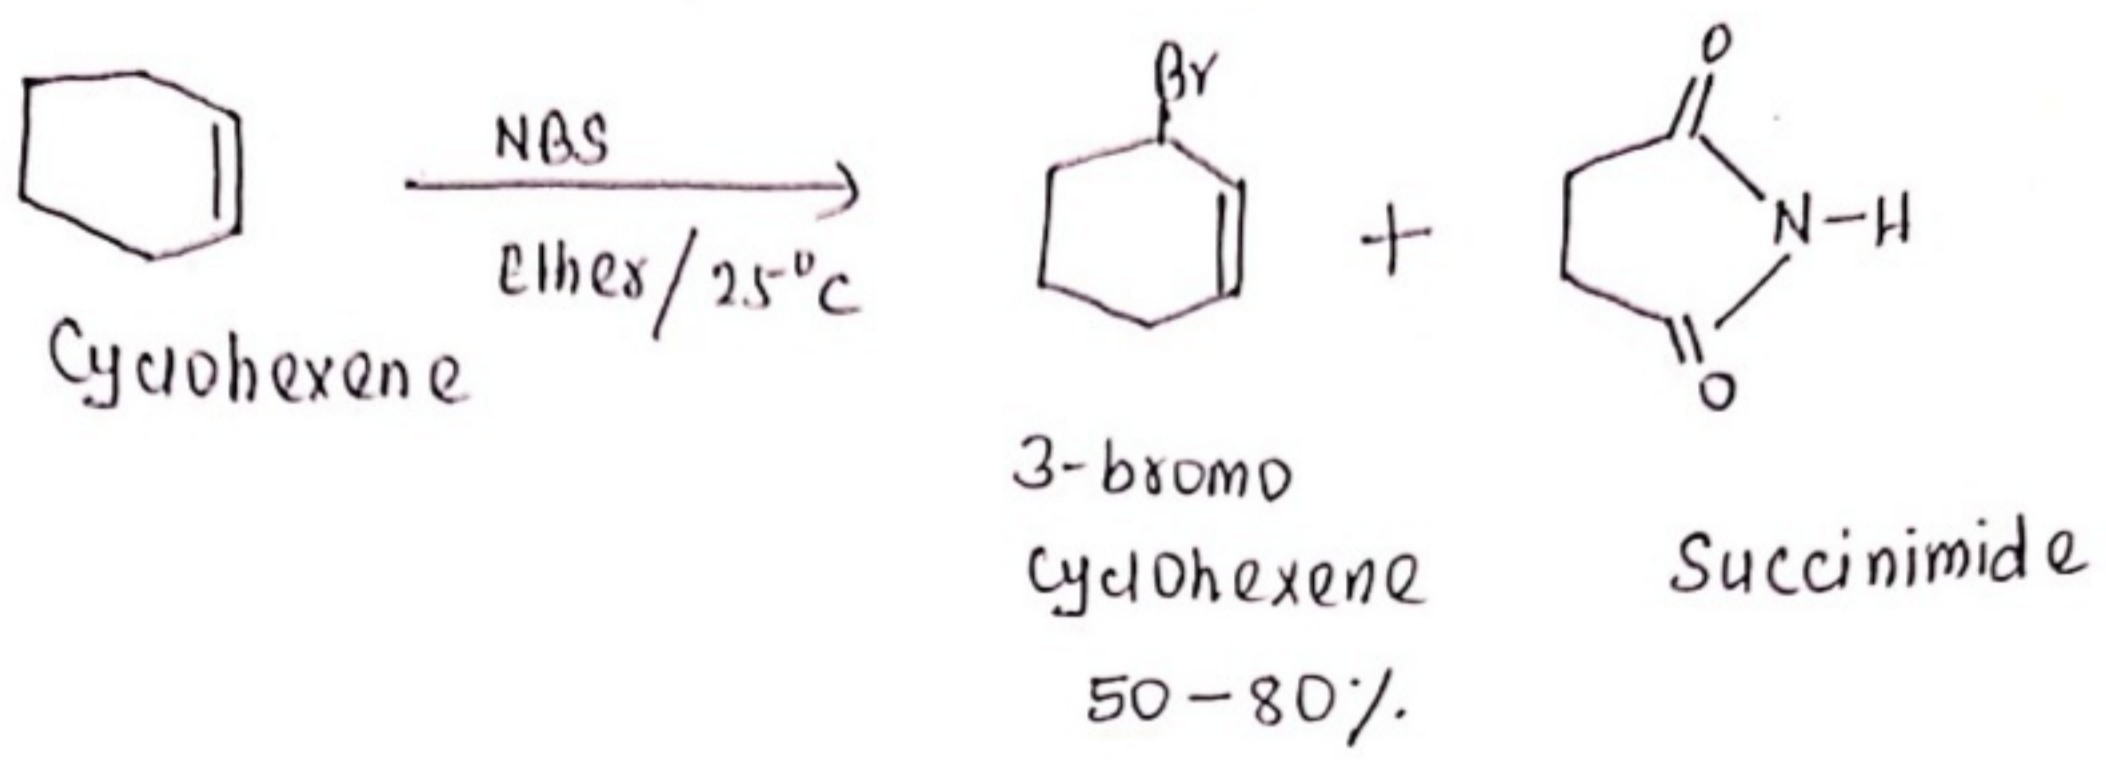 NBS
Ether/25°C
Cyclohexene
Br
+
O
N-H
O
3-bromo
cyclohexene
50-80%.
Succinimide